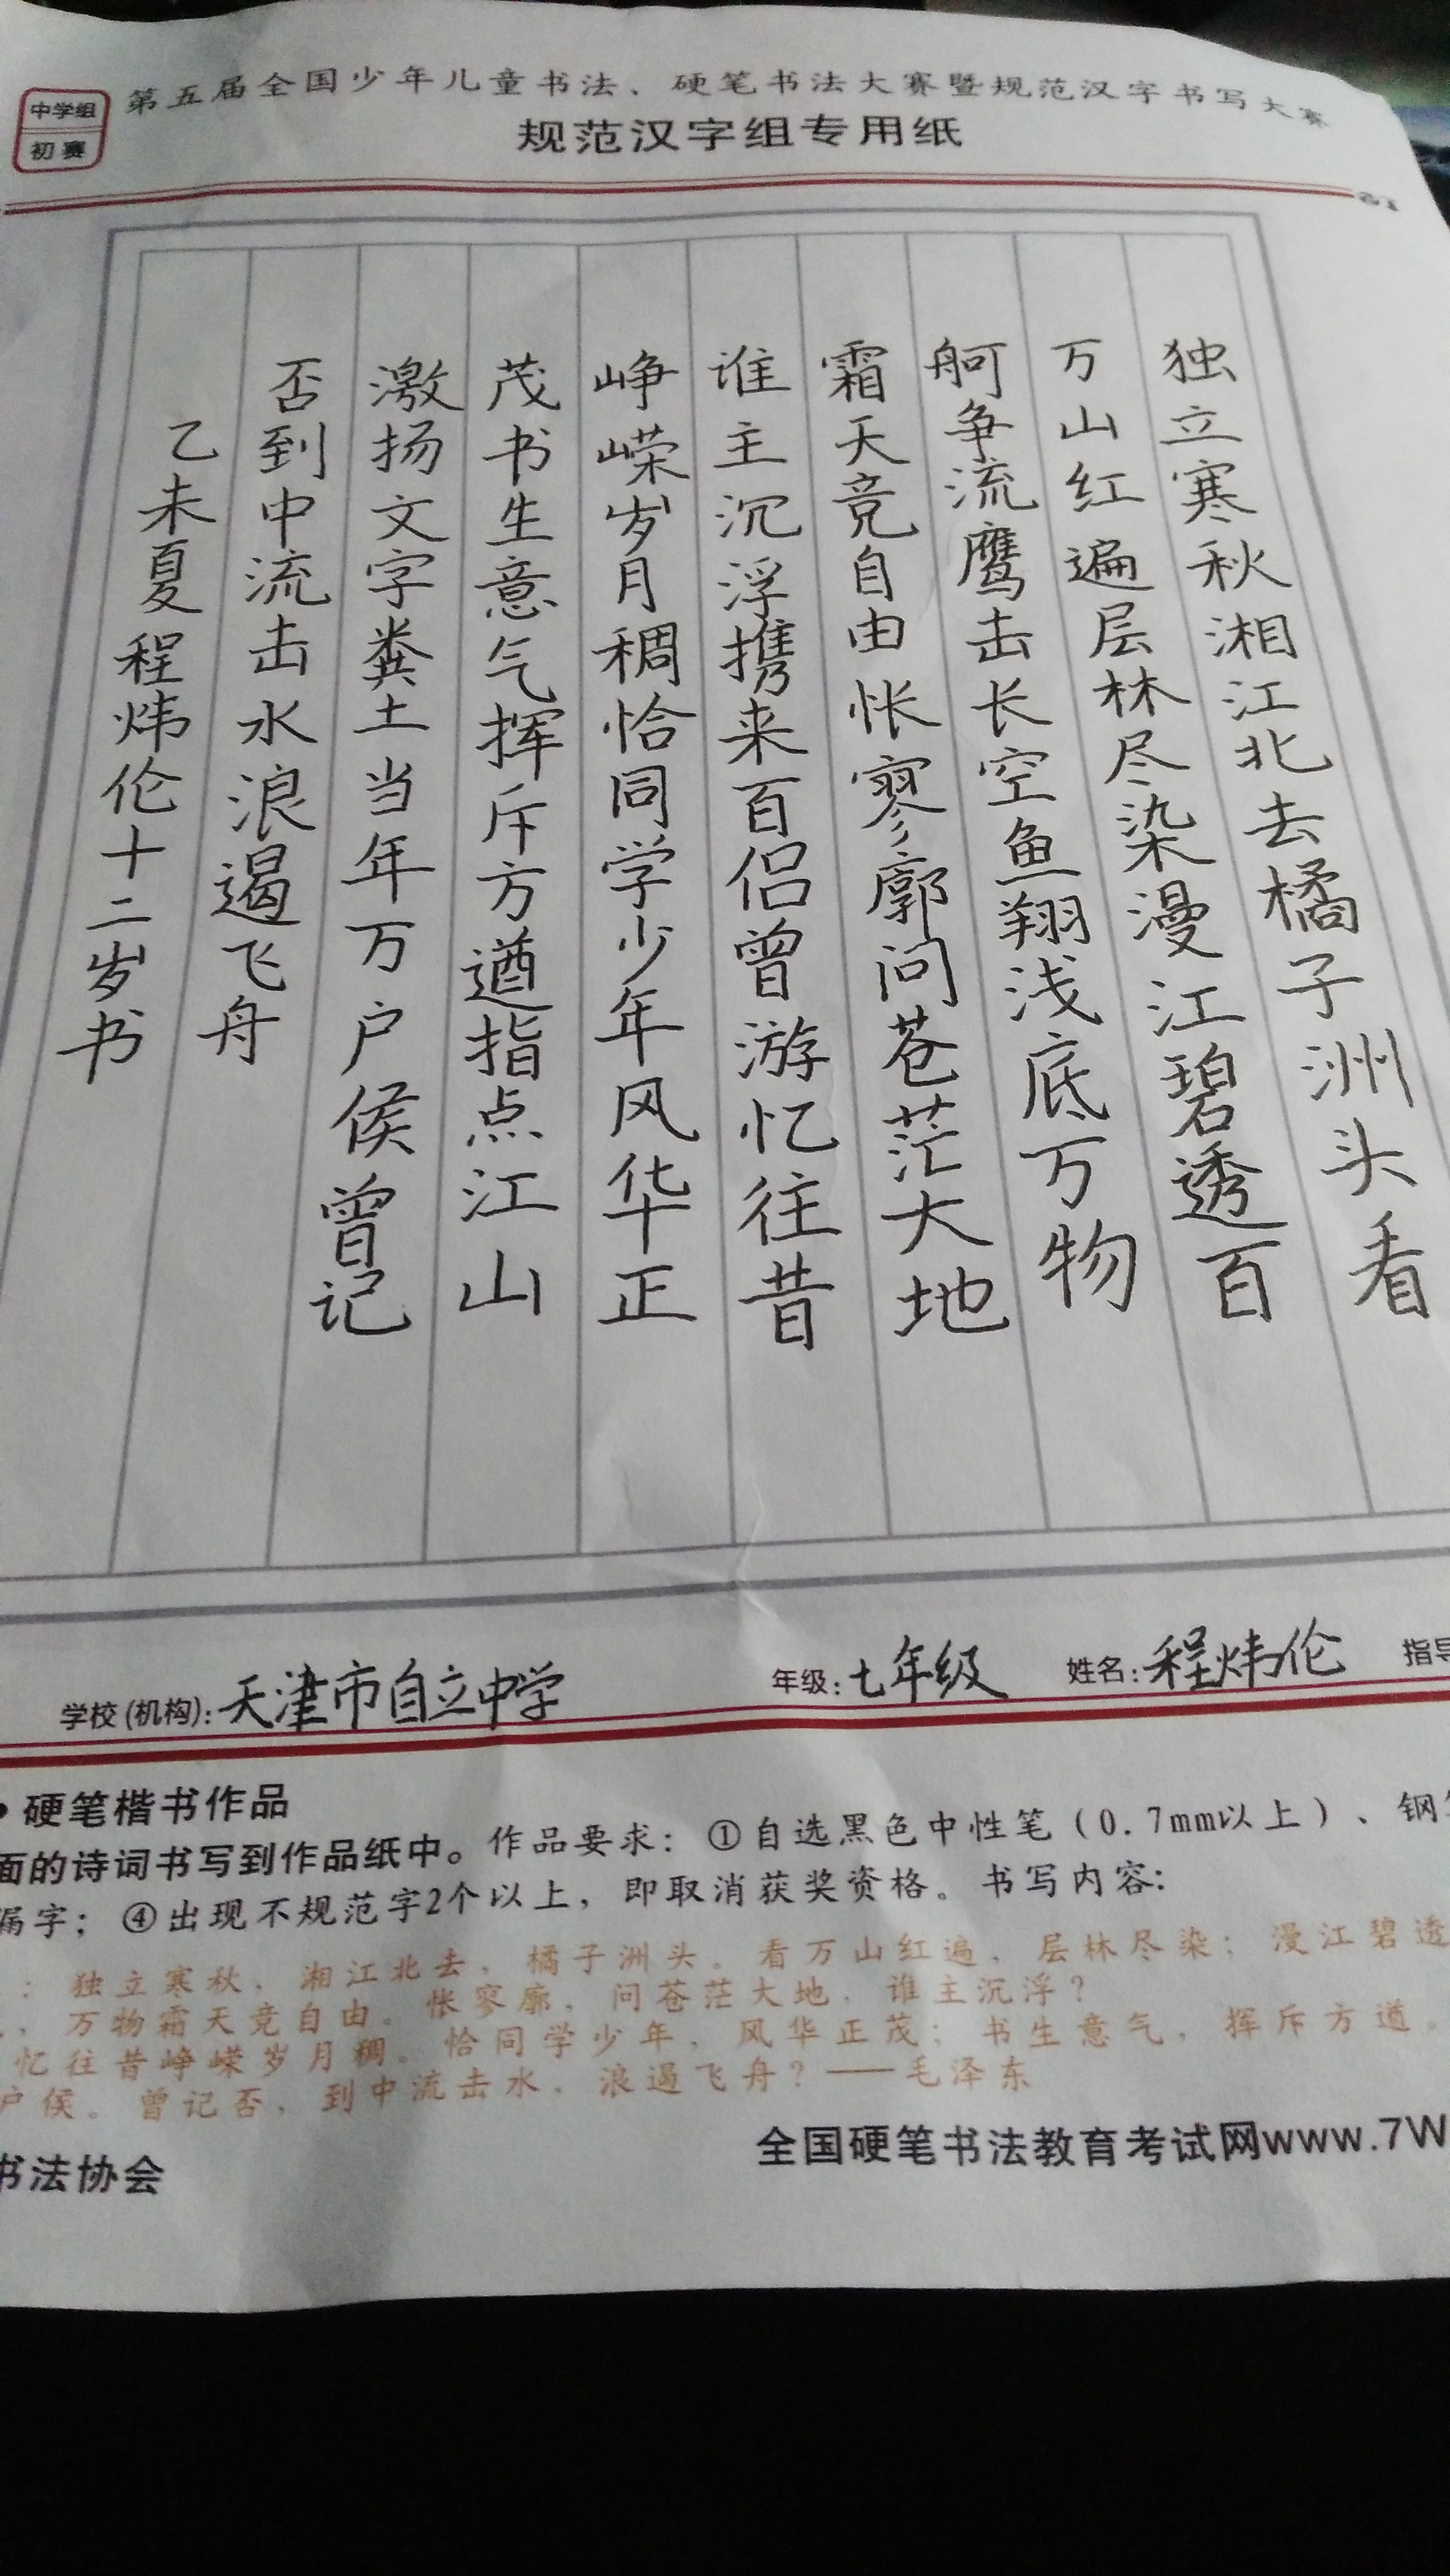 第五届全国少年儿童书法、硬笔书法大赛暨规范汉字书写大赛
中学组
初赛
规范汉字组专用纸
独立寒秋湘江北去橘子洲头看
万山红遍层林尽染漫江碧透百
舸争流鹰击长空鱼翔浅底万物
霜天竞自由怅寥廓问苍茫大地
谁主沉浮携来百侣曾游忆往昔
峥嵘岁月稠恰同学少年风华正
茂书生意气挥斥方遒指点江山
激扬文字粪土当年万户侯曾记
否到中流击水浪遏飞舟
乙未夏程炜伦十二岁书
学校(机构):天津市自立中学 年级:七年级 姓名:程炜伦 指导
•硬笔楷书作品
面的诗词书写到作品纸中。作品要求：①自选黑色中性笔（0.7mm以上）、钢
漏字；④出现不规范字2个以上，即取消获奖资格。书写内容：
：独立寒秋，湘江北去，橘子洲头。看万山红遍，层林尽染；漫江碧透
，万物霜天竞自由。怅寥廓，问苍茫大地，谁主沉浮？
忆往昔峥嵘岁月稠。恰同学少年，风华正茂；书生意气，挥斥方遒。
户侯。曾记否，到中流击水，浪遏飞舟？——毛泽东
书法协会 全国硬笔书法教育考试网www.7W